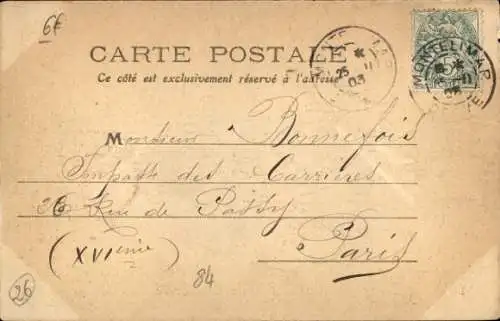 6f
CARTE POSTALE
Ce côté est exclusivement réservé à l'adresse
MONTELIMAR
25
03
MONTELIMAR
Monsieur Bonnefois
Impasse des Carrières
26 Rue de Passy
Paris
(XVIème)
84
26